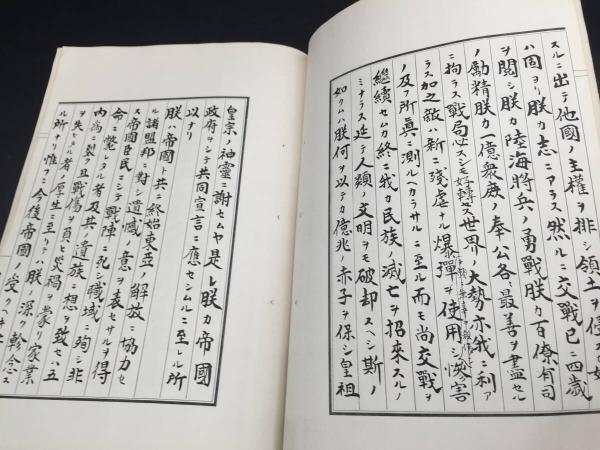 スルニ出テ他國ノ主權ヲ排シ領土ヲ侵スカ如
ハ固ヨリ朕カ志ニアラス然ルニ交戰已ニ四歳
ヲ閲シ朕カ陸海將兵ノ勇戰朕カ百僚有司
ノ勵精朕カ一億衆庶ノ奉公各〻最善ヲ盡セル
ニ拘ラス戰局必スシモ好轉セス世界ノ大勢亦我ニ利ア
ラス加之敵ハ新ニ殘虐ナル爆彈ヲ使用シ頻ニ無辜ヲ殺傷シ慘害
ノ及フ所眞ニ測ルヘカラサルニ至ル而モ尚交戰ヲ
繼續セムカ終ニ我カ民族ノ滅亡ヲ招來スルノ
ミナラス延テ人類ノ文明ヲモ破却スヘシ斯ノ
如クムハ朕何ヲ以テカ億兆ノ赤子ヲ保シ皇祖
皇宗ノ神靈ニ謝セムヤ是レ朕カ帝國
政府ヲシテ共同宣言ニ應セシムルニ至レル所
以ナリ
朕ハ帝國ト共ニ終始東亞ノ解放ニ協力セ
ル諸盟邦ニ對シ遺憾ノ意ヲ表セサルヲ得
ス帝國臣民ニシテ戰陣ニ死シ職域ニ殉シ非
命ニ斃レタル者及其ノ遺族ニ想ヲ致セハ五
内爲ニ裂ク且戰傷ヲ負ヒ災禍ヲ蒙リ家業
ヲ失ヒタル者ノ厚生ニ至リテハ朕ノ深ク軫念ス
ル所ナリ惟フニ今後帝國ノ受クヘキ